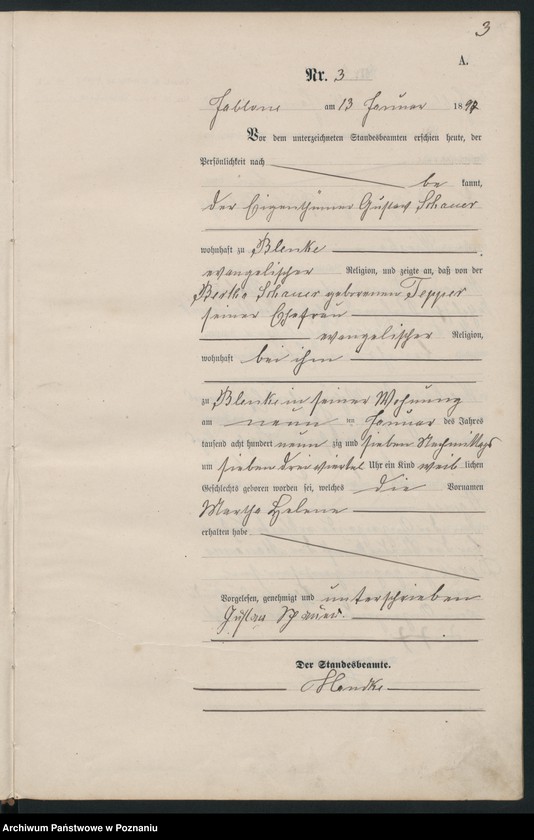 3
A.
Nr. 3
Jablone am 13 Januar 1897
Vor dem unterzeichneten Standesbeamten erschien heute, der
Persönlichkeit nach
be kannt,
der Eigenthümer Gustav Schauer
wohnhaft zu Blenke
evangelischer Religion, und zeigte an, daß von der
Bertha Schauer geborenen Tepper
seiner Ehefrau
evangelischer Religion,
wohnhaft bei ihm
zu Blenke in seiner Wohnung
am neunten Januar des Jahres
tausend acht hundert neun zig und sieben Nachmittags
um sieben drei viertel Uhr ein Kind weib lichen
Geschlechts geboren worden sei, welches die Vornamen
Martha Helene
erhalten habe
Vorgelesen, genehmigt und unterschrieben
Gustav Schauer.
Der Standesbeamte.
Archiwum Państwowe w Poznaniu